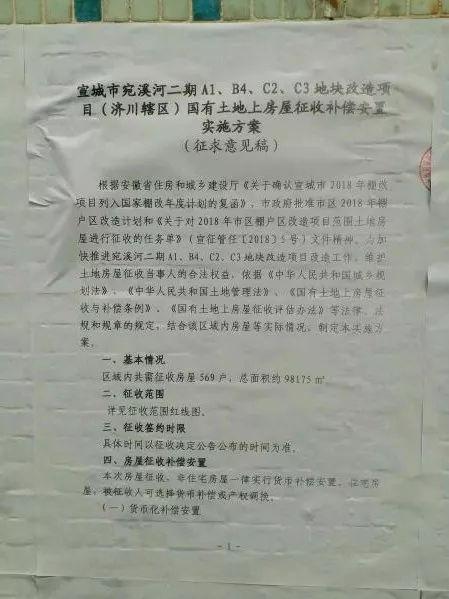 宣城市宛溪河二期 A1、B4、C2、C3 地块改造项
目（济川辖区）国有土地上房屋征收补偿安置
实施方案
（征求意见稿）
根据安徽省住房和城乡建设厅《关于确认宣城市 2018 年棚改
项目列入国家棚改年度计划的复函》，市政府批准市区 2018 年棚
户区改造计划和《关于对 2018 年市区棚户区改造项目范围土地房
屋进行征收的任务单》（宣征管任〔2018〕5 号）文件精神，为加
快推进宛溪河二期 A1、B4、C2、C3 地块改造项目改造工作，维护
土地房屋征收当事人的合法权益，依据《中华人民共和国城乡规
划法》、《中华人民共和国土地管理法》、《国有土地上房屋征收
与补偿条例》、《国有土地上房屋征收评估办法》等法律、法
规和规章的规定，结合该区域内房屋等实际情况，制定本实施方
案。
一、基本情况
区域内共需征收房屋 569 户，总面积约 98175 ㎡。
二、征收范围
详见征收范围红线图。
三、征收签约时限
具体时间以征收决定公告公布的时间为准。
四、房屋征收补偿安置
本次房屋征收，非住宅房屋一律实行货币补偿安置。住宅房
屋，被征收人可选择货币补偿或产权调换。
（一）货币化补偿安置
- 1 -